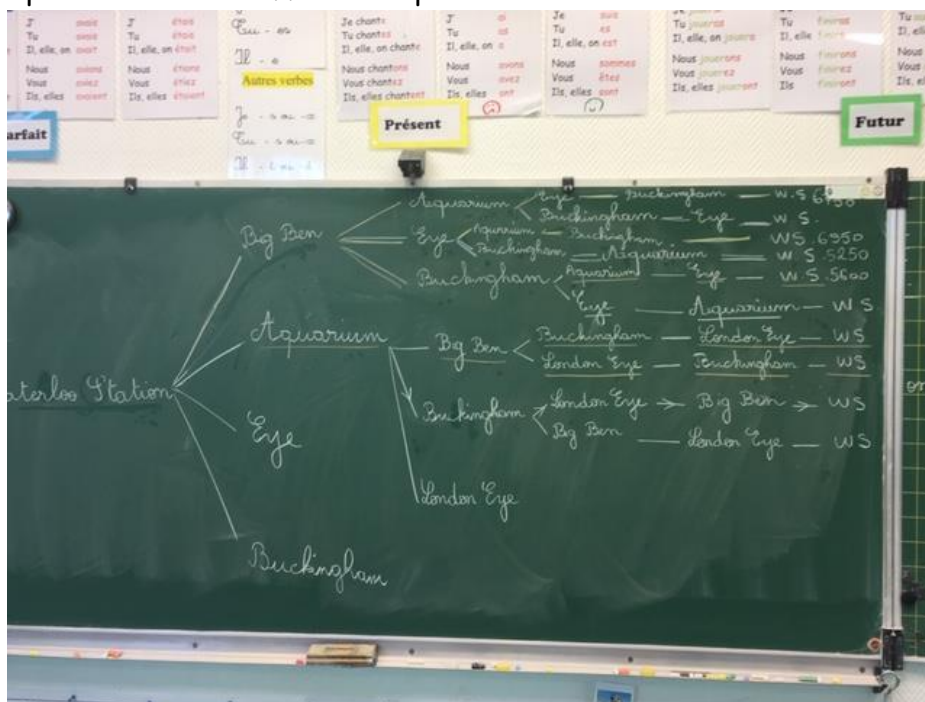 J' avais
Tu avais
Il, elle, on avait
Nous avions
Vous aviez
Ils, elles avaient
J' étais
Tu étais
Il, elle, on était
Nous étions
Vous étiez
Ils, elles étaient
Tu - as
Il - a
Autres verbes
Je - s ou - x
Tu - s ou - x
Il - t ou - d
Je chante
Tu chantes
Il, elle, on chante
Nous chantons
Vous chantez
Ils, elles chantent
J' ai
Tu as
Il, elle, on a
Nous avons
Vous avez
Ils, elles ont
Je suis
Tu es
Il, elle, on est
Nous sommes
Vous êtes
Ils, elles sont
Tu joueras
Il, elle, on jouera
Nous jouerons
Vous jouerez
Ils, elles joueront
Tu finiras
Il, elle finira
Nous finirons
Vous finirez
Ils finiront
arfait
Présent
Futur
Aquarium Eye Buckingham W.S 6750
Buckingham Eye W S.
Big Ben Eye Aquarium Buckingham. W S .6950
Buckingham Aquarium W S .5250
Buckingham Aquarium Eye W S .5600
Eye Aquarium W S
Aquarium Big Ben Buckingham London Eye W S
London Eye Buckingham W S
aterloo Station Buckingham London Eye Big Ben W S
Big Ben London Eye W S
Eye
London Eye
Buckingham